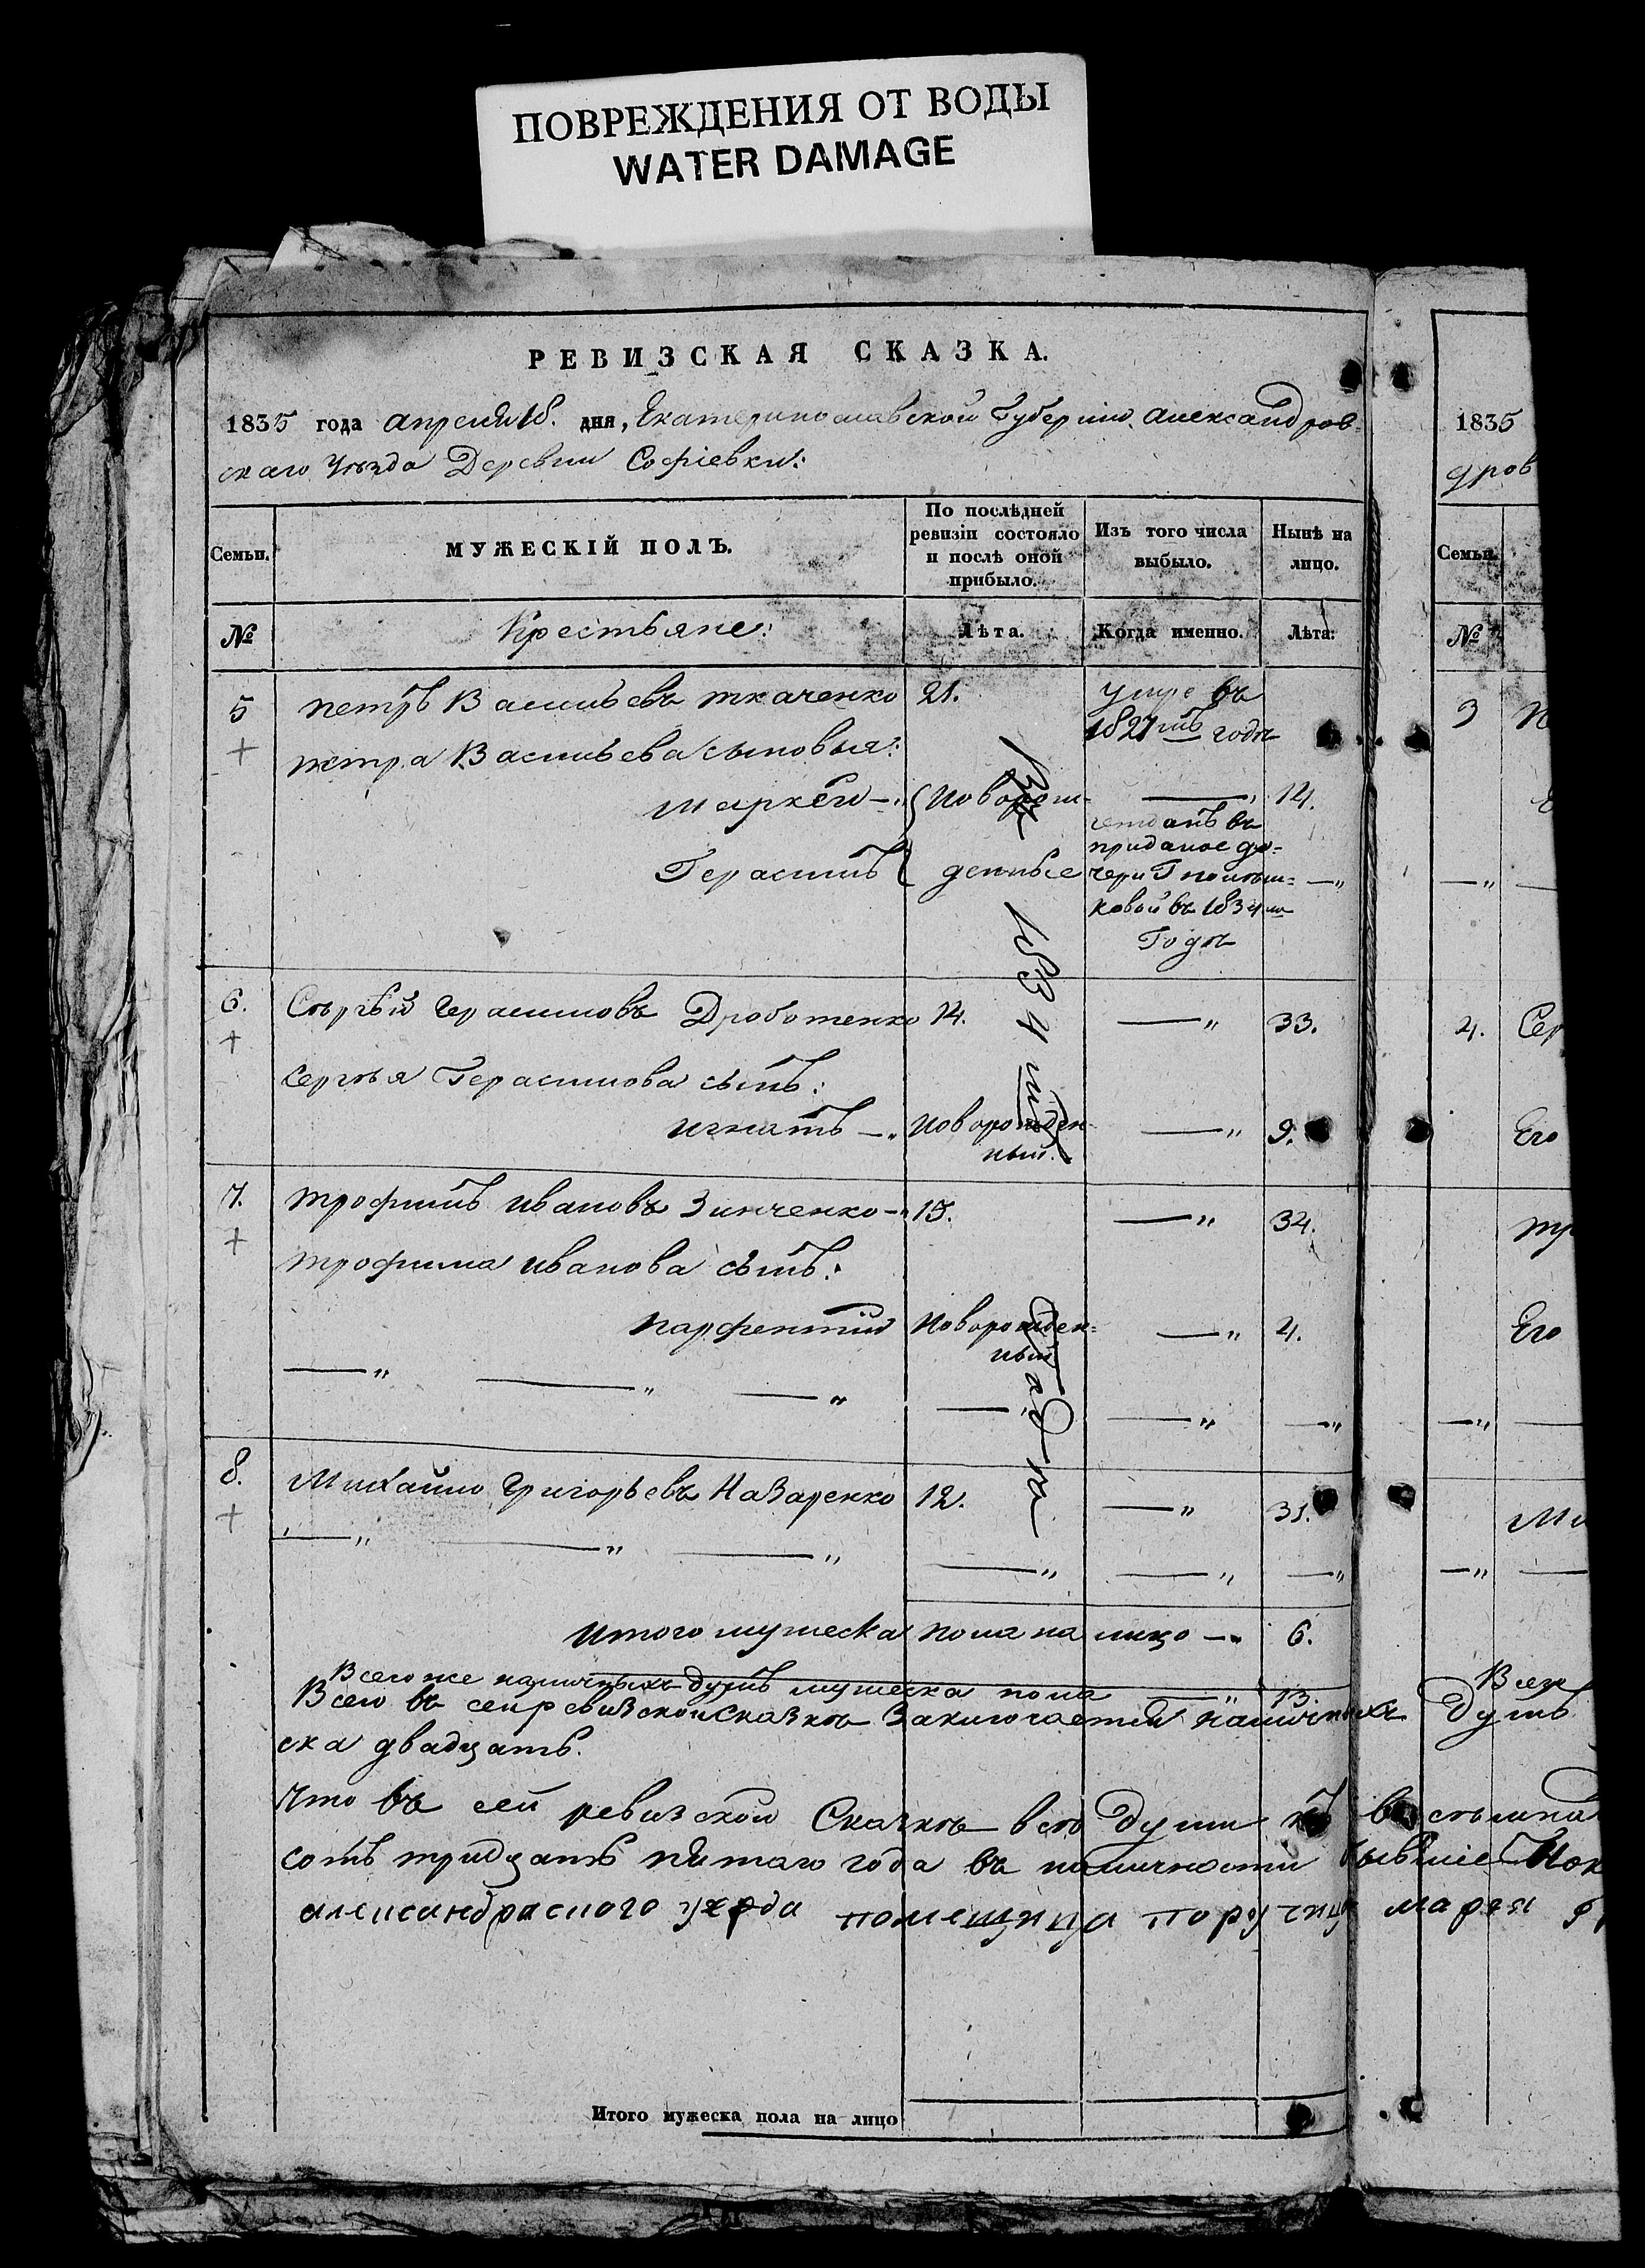 ПОВРЕЖДЕНИЯ ОТ ВОДЫ
WATER DAMAGE
РЕВИЗСКАЯ СКАЗКА.
1835 года Апреля 18. дня, Екатеринославской Губерніи Александров-
скаго Уѣзда Деревни Софіевки:
Семьи.
МУЖЕСКІЙ ПОЛЪ.
По послѣдней
ревизіи состояло
и послѣ оной
прибыло.
Изъ того числа
выбыло.
Нынѣ на
лицо.
№
Крестьяне:
Лѣта.
Когда именно.
Лѣта:
5 Петръ Васильевъ Ткаченко 21. умре въ
1827мъ годѣ
Петра Васильева сыновья:
Новорож- —„ 14.
Герасимъ денные
отданъ въ
приданое до-
чери
въ 1834м
Годѣ
Въ 1834мъ Годѣ
6. Сѣргѣй Герасимовъ Дроботенко 14. —„ 33.
Сергѣя Герасимова сынъ:
Игнатъ —„ Новорожден- —„ 9.
ный.
7. Трофимъ Ивановъ Зинченко —„ 15. —„ 34.
Трофима Иванова сынъ:
Парфентій Новорожден- —„ 4.
ный
8. Михайло Григорьевъ Назаренко 12. —„ 31.
Итого мужеска пола на лицо —„ 6.
Всего же наличныхъ душъ мужеска пола —„ 13.
Всего въ сей ревизской сказкѣ заключается наличныхъ душъ
ска двадцать.
Что въ сей ревизской Сказкѣ всѣ души
сотъ тридцать пятаго года въ наличности бывшіе
уезда помещица марея
Итого мужеска пола на лицо
1835
дров
Семьи.
№
3
4. Сер
Его
Тр
Его
Ми
Всех